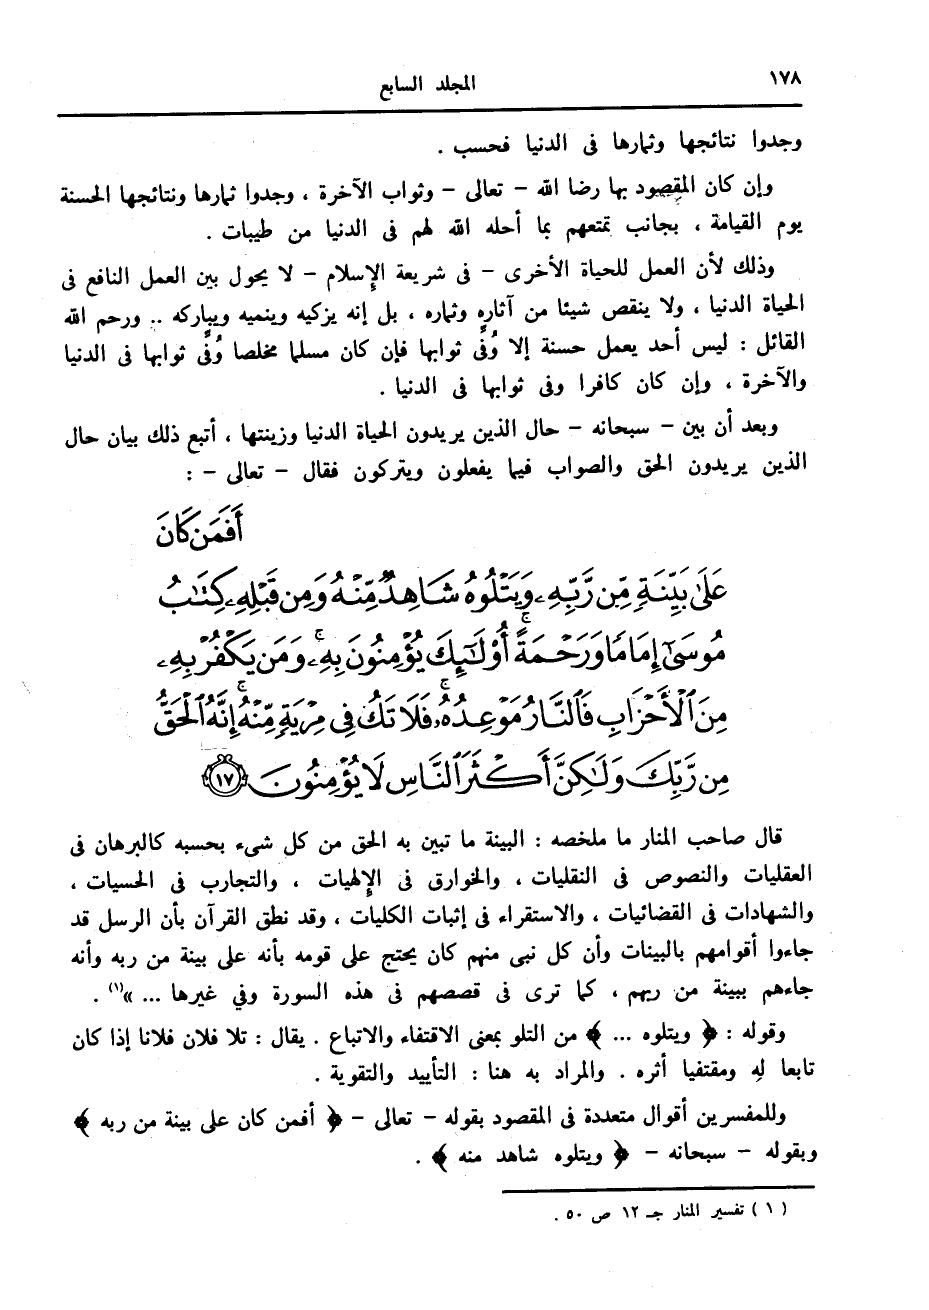 ١٧٨
المجلد السابع
وجدوا نتائجها وثمارها فى الدنيا فحسب .
وإن كان المقصود بها رضا الله – تعالى – وثواب الآخرة ، وجدوا ثمارها ونتائجها الحسنة
يوم القيامة ، بجانب تمتعهم بما أحله الله لهم فى الدنيا من طيبات .
وذلك لأن العمل للحياة الأخرى – فى شريعة الإسلام – لا يحول بين العمل النافع فى
الحياة الدنيا ، ولا ينقص شيئا من آثاره وثماره ، بل إنه يزكيه وينميه ويباركه .. ورحم الله
القائل : ليس أحد يعمل حسنة إلا وُفَّى ثوابها فإن كان مسلما مخلصا وُفَّى ثوابها فى الدنيا
والآخرة ، وإن كان كافرا وفى ثوابها فى الدنيا .
وبعد أن بين – سبحانه – حال الذين يريدون الحياة الدنيا وزينتها ، أتبع ذلك بيان حال
الذين يريدون الحق والصواب فيما يفعلون ويتركون فقال – تعالى – :
أَفَمَن كَانَ
عَلَىٰ بَيِّنَةٍ مِّن رَّبِّهِۦ وَيَتْلُوهُ شَاهِدٌ مِّنْهُ وَمِن قَبْلِهِۦ كِتَٰبُ
مُوسَىٰٓ إِمَامًا وَرَحْمَةً ۚ أُوْلَٰٓئِكَ يُؤْمِنُونَ بِهِۦ ۚ وَمَن يَكْفُرْ بِهِۦ
مِنَ ٱلْأَحْزَابِ فَٱلنَّارُ مَوْعِدُهُۥ ۚ فَلَا تَكُ فِى مِرْيَةٍ مِّنْهُ ۚ إِنَّهُ ٱلْحَقُّ
مِن رَّبِّكَ وَلَٰكِنَّ أَكْثَرَ ٱلنَّاسِ لَا يُؤْمِنُونَ ١٧
قال صاحب المنار ما ملخصه : البينة ما تبين به الحق من كل شىء بحسبه كالبرهان فى
العقليات والنصوص فى النقليات ، والخوارق فى الإلهيات ، والتجارب فى الحسيات ،
والشهادات فى القضائيات ، والاستقراء فى إثبات الكليات ، وقد نطق القرآن بأن الرسل قد
جاءوا أقوامهم بالبينات وأن كل نبى منهم كان يحتج على قومه بأنه على بينة من ربه وأنه
جاءهم ببينة من ربهم ، كما ترى فى قصصهم فى هذه السورة وفي غيرها ... »(١) .
وقوله : ﴿ ويتلوه ... ﴾ من التلو بمعنى الاقتفاء والاتباع . يقال : تلا فلان فلانا إذا كان
تابعا له ومقتفيا أثره . والمراد به هنا : التأييد والتقوية .
وللمفسرين أقوال متعددة فى المقصود بقوله – تعالى – ﴿ أفمن كان على بينة من ربه ﴾
وبقوله – سبحانه – ﴿ ويتلوه شاهد منه ﴾ .
( ١ ) تفسير المنار جـ ١٢ ص ٥٠ .